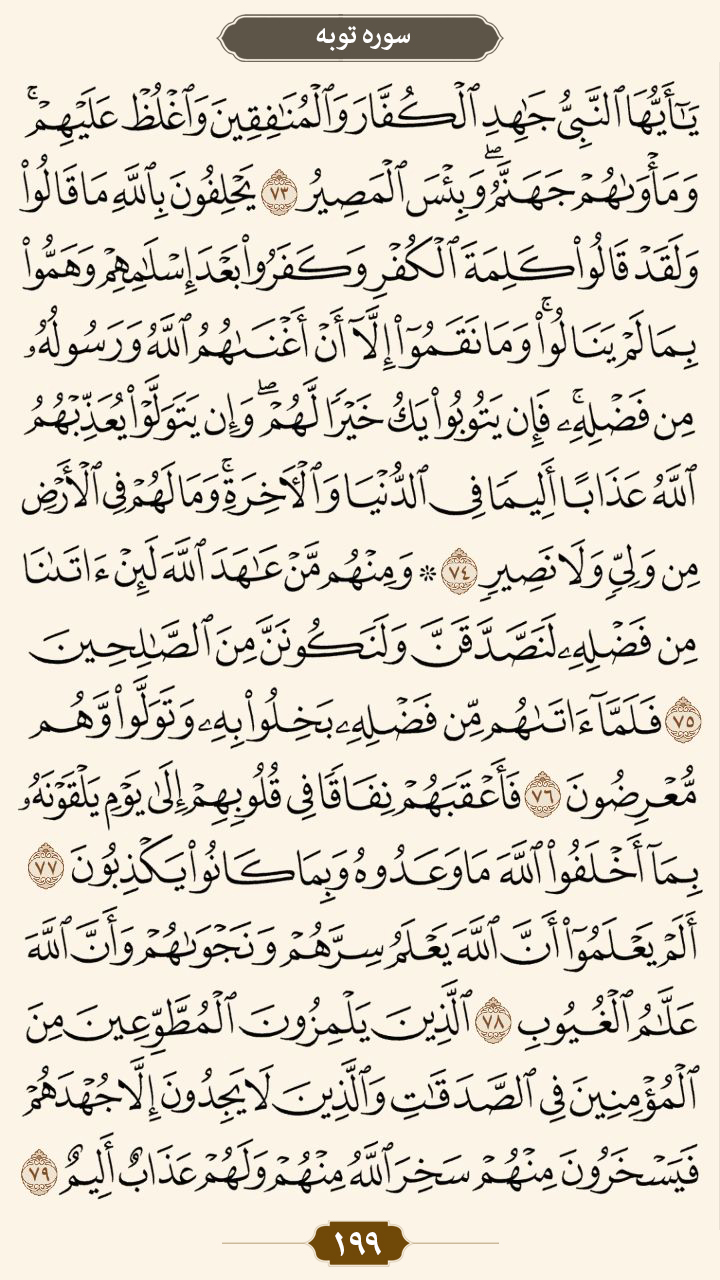 سوره توبه
يَٰٓأَيُّهَا ٱلنَّبِيُّ جَٰهِدِ ٱلۡكُفَّارَ وَٱلۡمُنَٰفِقِينَ وَٱغۡلُظۡ عَلَيۡهِمۡۚ
وَمَأۡوَىٰهُمۡ جَهَنَّمُۖ وَبِئۡسَ ٱلۡمَصِيرُ ٧٣ يَحۡلِفُونَ بِٱللَّهِ مَا قَالُواْ
وَلَقَدۡ قَالُواْ كَلِمَةَ ٱلۡكُفۡرِ وَكَفَرُواْ بَعۡدَ إِسۡلَٰمِهِمۡ وَهَمُّواْ
بِمَا لَمۡ يَنَالُواْۚ وَمَا نَقَمُوٓاْ إِلَّآ أَنۡ أَغۡنَىٰهُمُ ٱللَّهُ وَرَسُولُهُۥ
مِن فَضۡلِهِۦۚ فَإِن يَتُوبُواْ يَكُ خَيۡرٗا لَّهُمۡۖ وَإِن يَتَوَلَّوۡاْ يُعَذِّبۡهُمُ
ٱللَّهُ عَذَابًا أَلِيمٗا فِي ٱلدُّنۡيَا وَٱلۡأٓخِرَةِۚ وَمَا لَهُمۡ فِي ٱلۡأَرۡضِ
مِن وَلِيّٖ وَلَا نَصِيرٖ ٧٤ ۞ وَمِنۡهُم مَّنۡ عَٰهَدَ ٱللَّهَ لَئِنۡ ءَاتَىٰنَا
مِن فَضۡلِهِۦ لَنَصَّدَّقَنَّ وَلَنَكُونَنَّ مِنَ ٱلصَّٰلِحِينَ
٧٥ فَلَمَّآ ءَاتَىٰهُم مِّن فَضۡلِهِۦ بَخِلُواْ بِهِۦ وَتَوَلَّواْ وَّهُم
مُّعۡرِضُونَ ٧٦ فَأَعۡقَبَهُمۡ نِفَاقٗا فِي قُلُوبِهِمۡ إِلَىٰ يَوۡمِ يَلۡقَوۡنَهُۥ
بِمَآ أَخۡلَفُواْ ٱللَّهَ مَا وَعَدُوهُ وَبِمَا كَانُواْ يَكۡذِبُونَ ٧٧
أَلَمۡ يَعۡلَمُوٓاْ أَنَّ ٱللَّهَ يَعۡلَمُ سِرَّهُمۡ وَنَجۡوَىٰهُمۡ وَأَنَّ ٱللَّهَ
عَلَّٰمُ ٱلۡغُيُوبِ ٧٨ ٱلَّذِينَ يَلۡمِزُونَ ٱلۡمُطَّوِّعِينَ مِنَ
ٱلۡمُؤۡمِنِينَ فِي ٱلصَّدَقَٰتِ وَٱلَّذِينَ لَا يَجِدُونَ إِلَّا جُهۡدَهُمۡ
فَيَسۡخَرُونَ مِنۡهُمۡ سَخِرَ ٱللَّهُ مِنۡهُمۡ وَلَهُمۡ عَذَابٌ أَلِيمٌ ٧٩
١٩٩